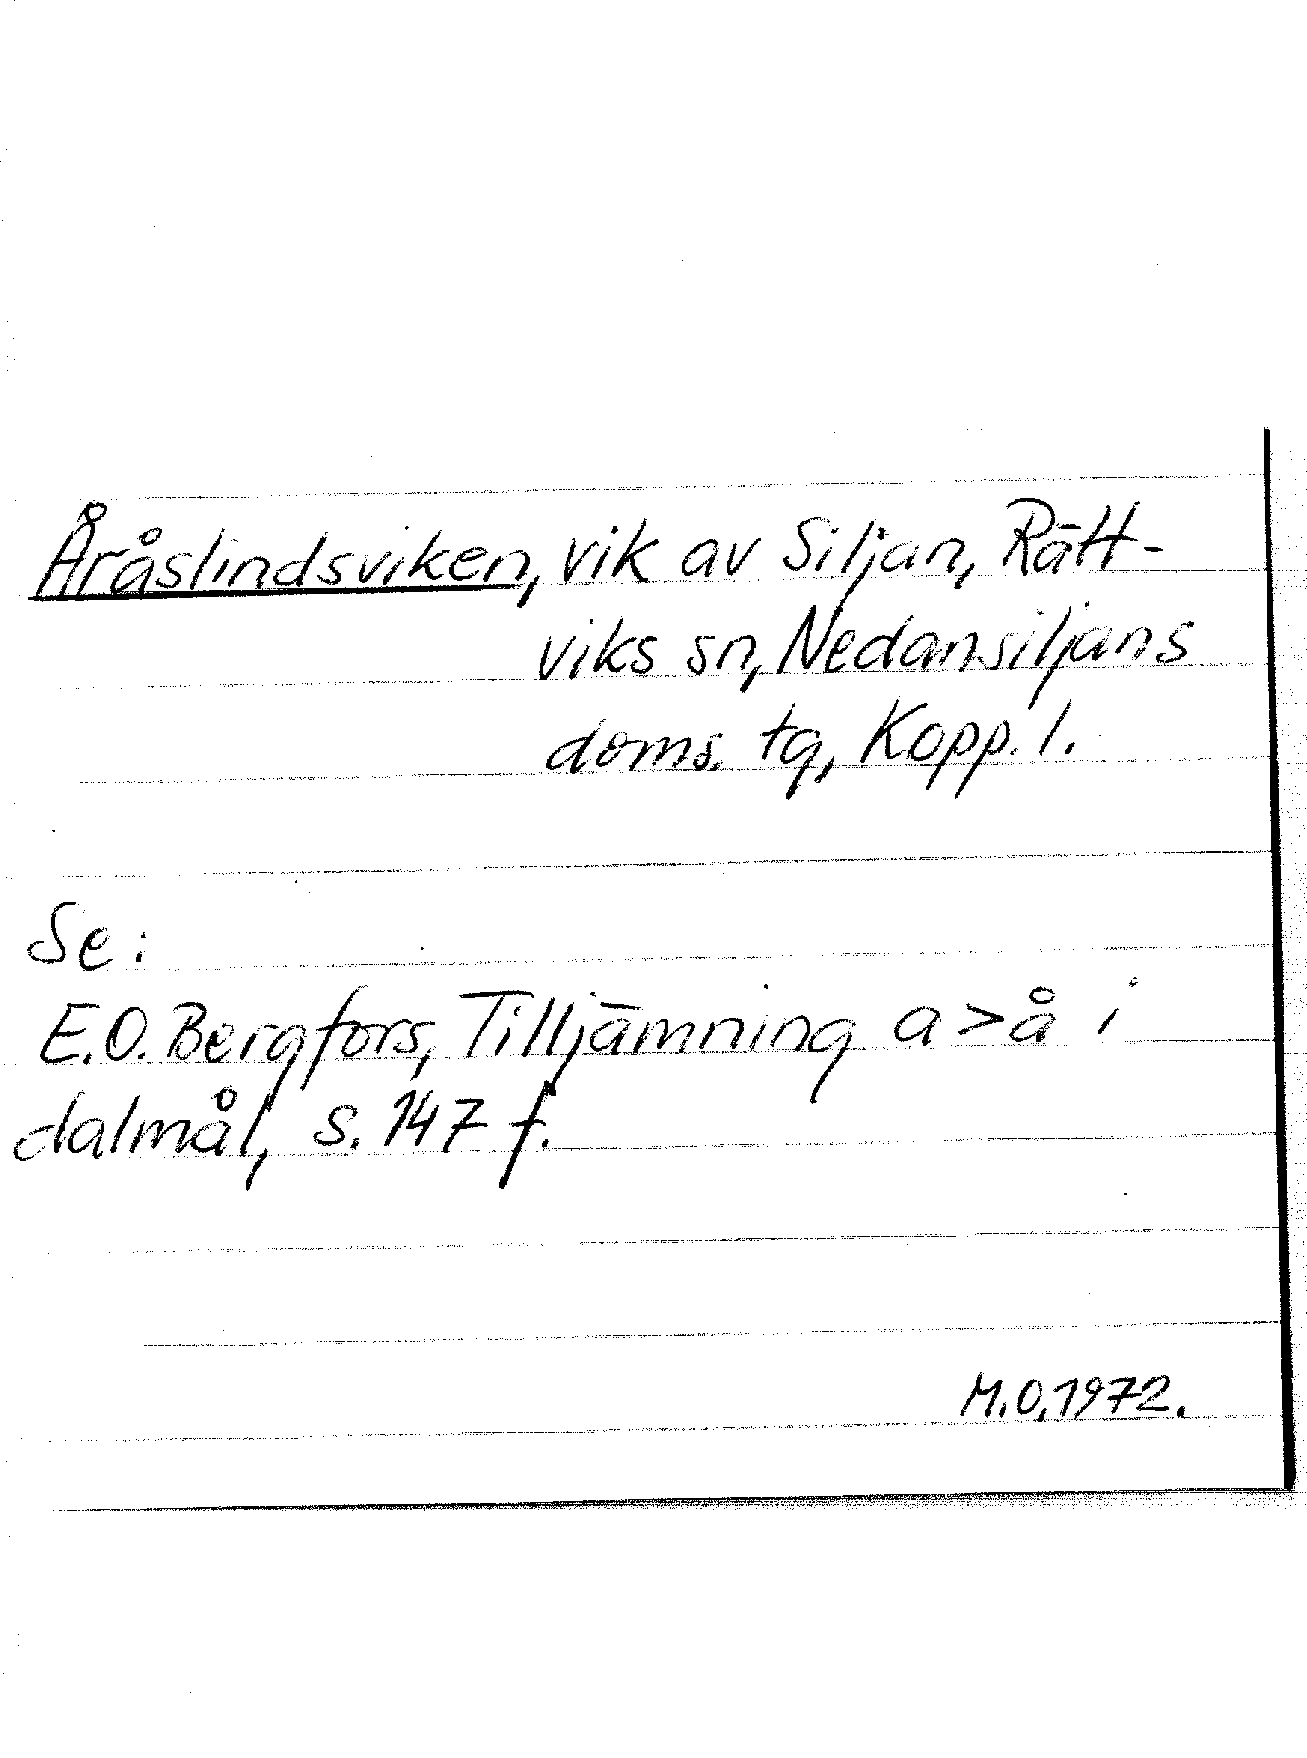 Åråslindsviken, vik av Siljan, Rätt-
viks sn, Nedansiljans
doms. tg, Kopp. l.
Se:
E.O. Bergfors, Tilljämning a>å i
dalmål, s. 147 f.
M.O. 1972.